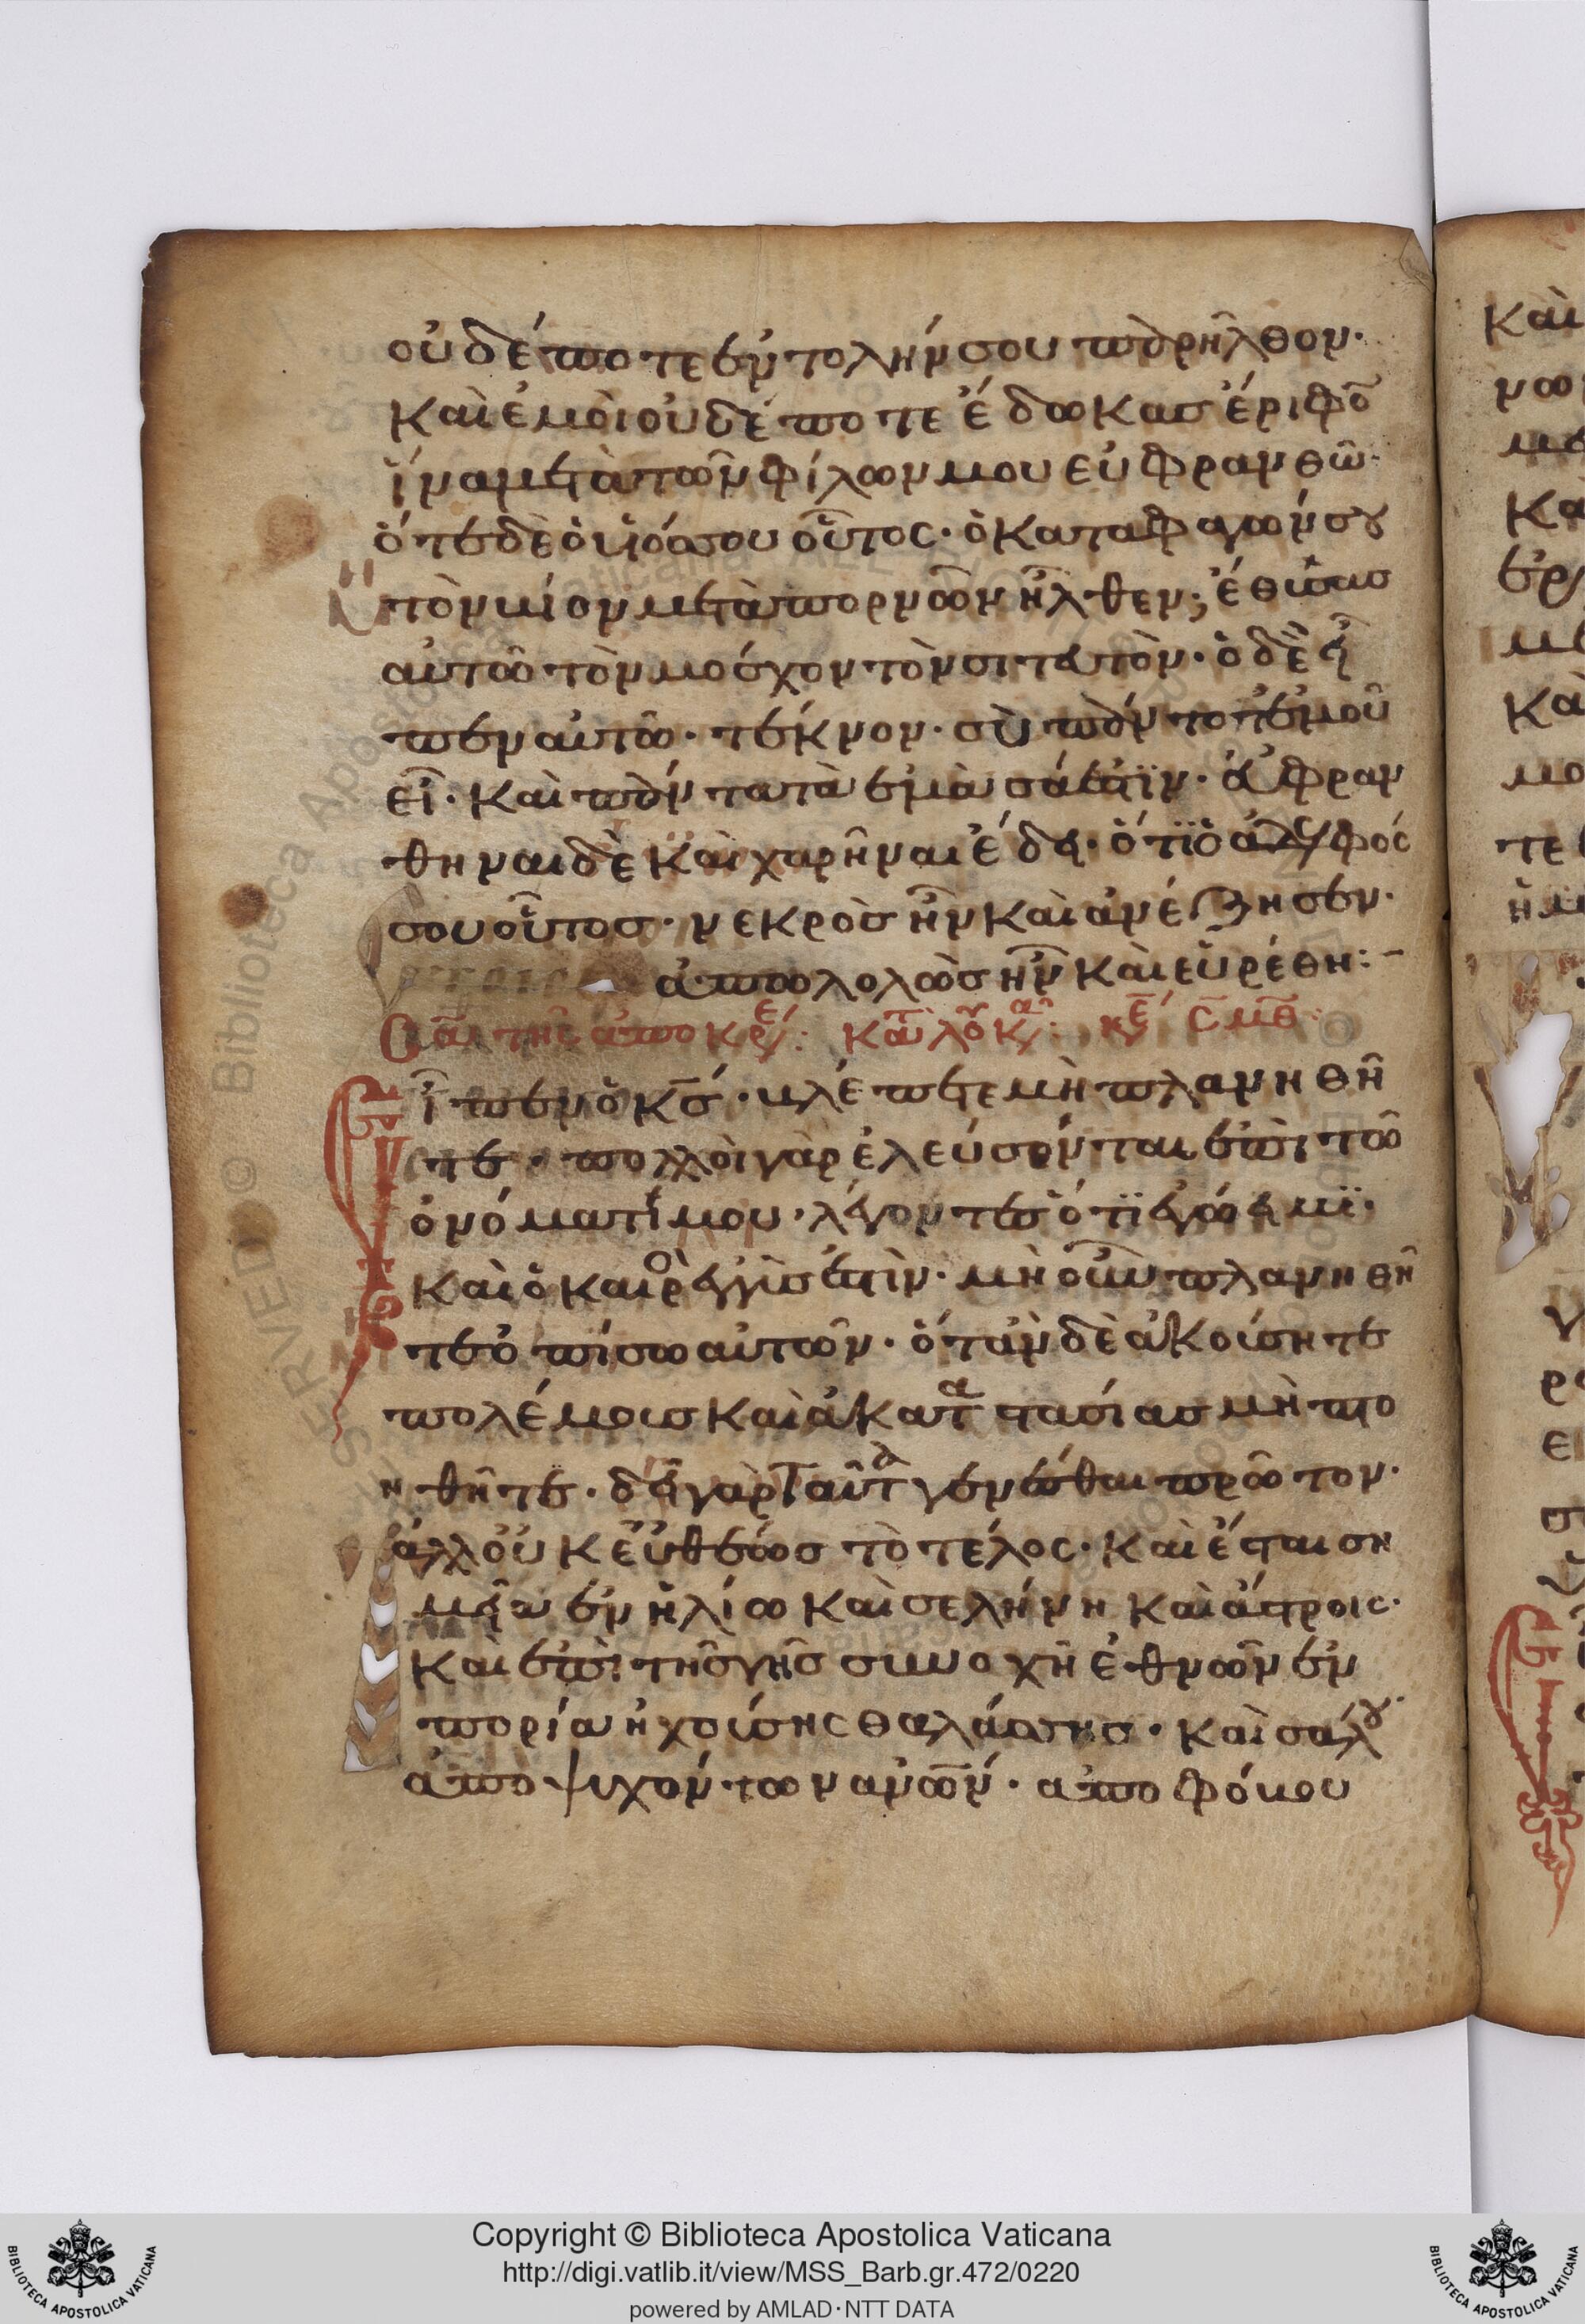 οὐδέποτε ἐντολήν σου παρῆλθον·
καὶ ἐμοὶ οὐδέποτε ἔδωκασ ἔριφο̅
ἵνα μετὰ τῶν φίλων μου εὐφρανθῶ·
ὅτε δὲ ὁ υἱόσ σου οὗτος· ὁ καταφαγών σου
τὸν βίον μετὰ πορνῶν ἦλθεν; ἔθυσασ
αὐτῶ τὸν μόσχον τὸν σιτευτὸν· ὁ δὲ εἶ
πεν αὐτῶ· τέκνον· σὺ πάντοτε ἐμοῦ
εἶ· καὶ πάντα τὰ ἐμὰ σά ἐστϊν· εὐφραν
θηναι δὲ καὶ χαρῆναι ἔδει· ὅτϊ ὁ ἀδελφός
σου οὗτοσ· νεκρὸσ ἦν καὶ ἀνέζησεν·
ἀπολολὼσ ἦν καὶ εὑρέθη:-
Σα τῆς ἀποκρε: κατ λουκα: κε
Εἶπεν ὁ κσ· βλέπετε μὴ πλανηθῆ
τε· πολλοὶ γὰρ ἐλεύσονται ἐπὶ τῶ
ὀνόματί μου· λέγοντεσ ὅτϊ ἐγώ εἰμϊ·
καὶ ὁ καιρὸ ἐγγὺσ ἐστὶν· μὴ οὖν πλανηθῆ
τε ὀπίσω αὐτῶν· ὅτἀν δὲ ἀκούσητε
πολέμουσ καὶ ἀκαταστασίασ μὴ πτο
ηθῆτε· δεῖ γὰρ ταῦτα γενέσθαι πρῶτον·
ἀλλοὐκ εὐθέωσ τὸ τέλος· καὶ ἔσται ση
μεῖα ἐν ἡλίω καὶ σελήνη καὶ ἄστροις·
καὶ ἐπὶ τῆσ γῆσ συνοχῆ ἐθνῶν ἐν
πορία ἠχούσης θαλάσσησ· καὶ σαλου·
ἀποψυχόντων ἀνων· ἀπο φόβου
Copyright © Biblioteca Apostolica Vaticana
http://digi.vatlib.it/view/MSS_Barb.gr.472/0220
powered by AMLAD·NTT DATA
BIBLIOTECA APOSTOLICA VATICANA
BIBLIOTECA APOSTOLICA VATICANA